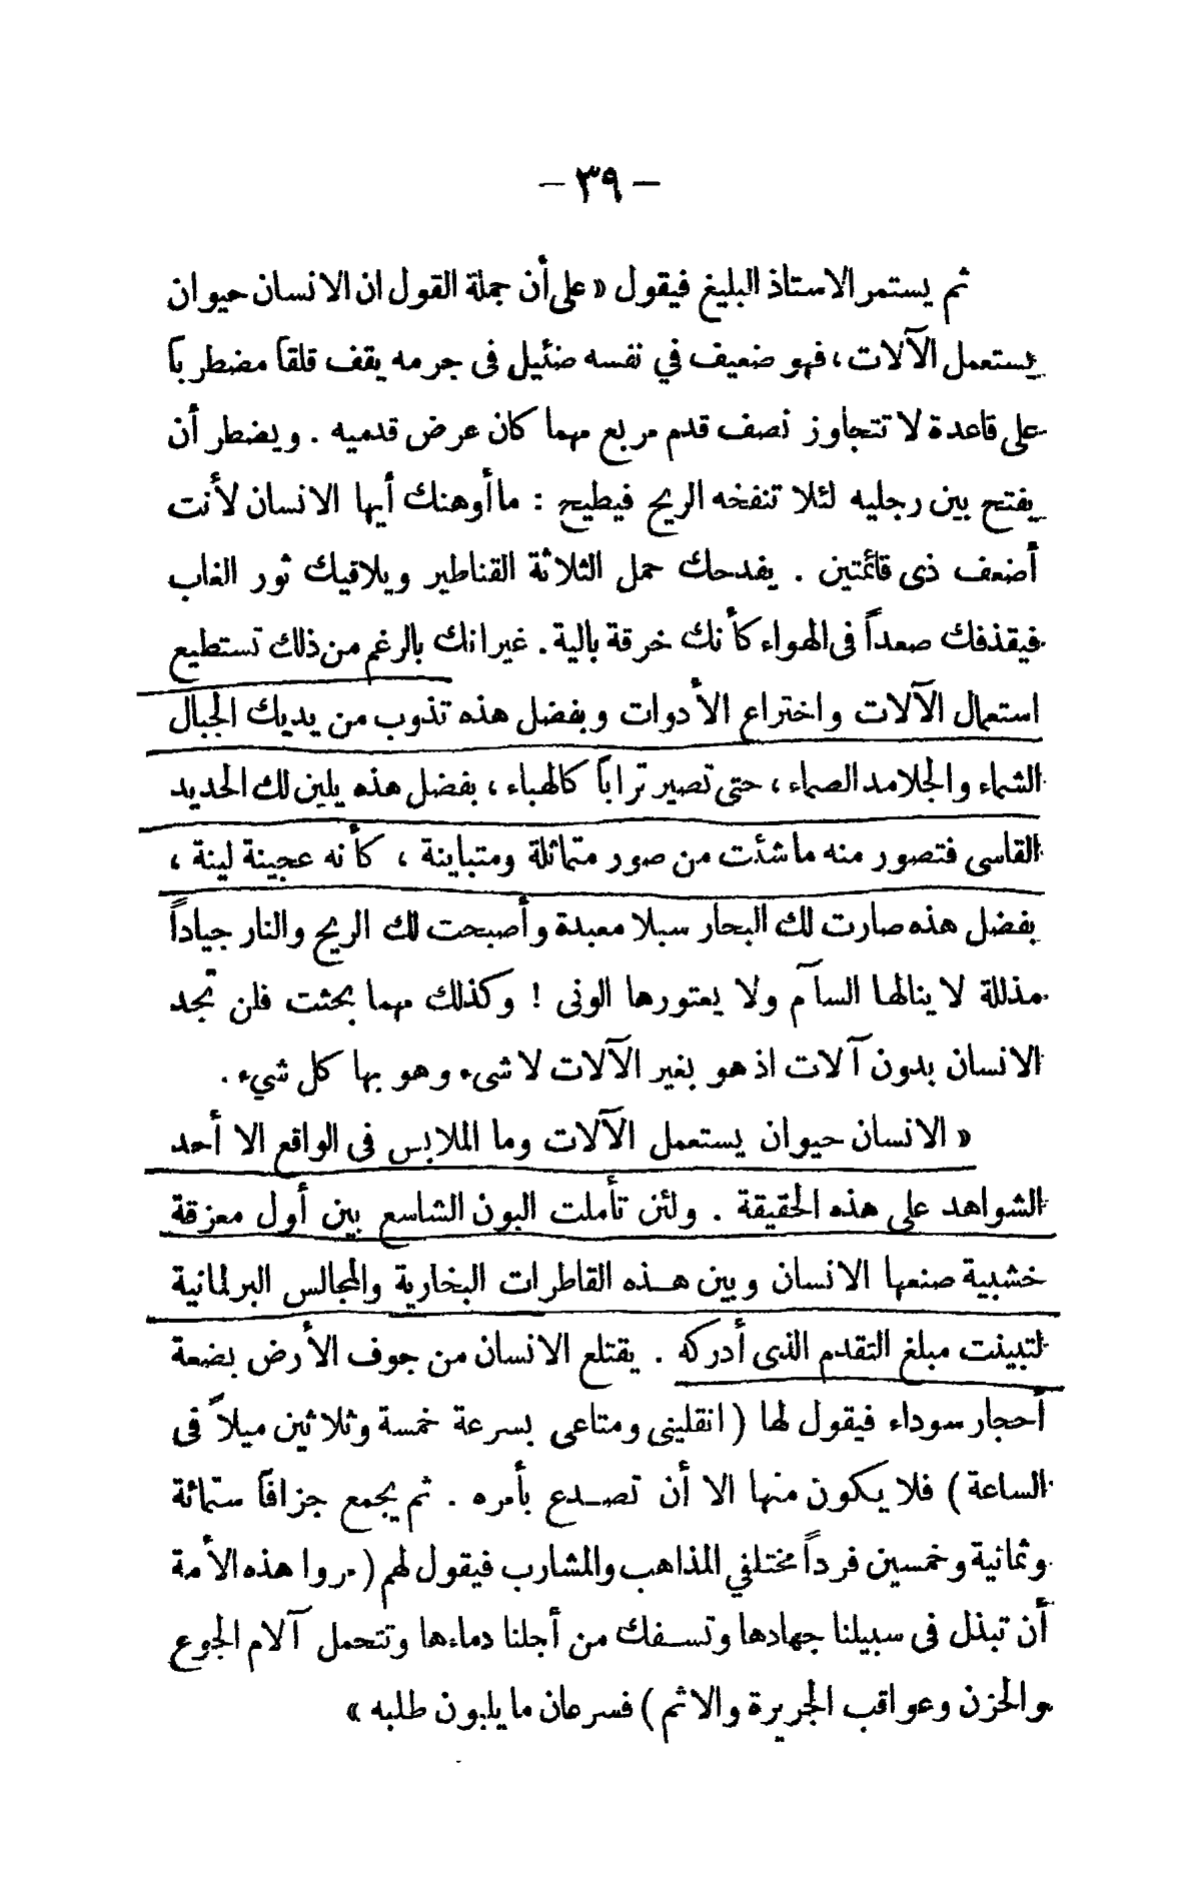 - ٣٩ -
ثم يستمر الاستاذ البليغ فيقول « على أن جملة القول ان الانسان حيوان
يستعمل الآلات ، فهو ضعيف في نفسه ضئيل فى جرمه يقف قلقاً مضطرباً
على قاعدة لا تتجاوز نصف قدم مربع مهما كان عرض قدميه . ويضطر أن
يفتح بين رجليه لئلا تنفخه الريح فيطيح : ما أوهنك أيها الانسان لأنت
أضعف ذى قائمتين . يفدحك حمل الثلاثة القناطير ويلاقيك ثور الغاب
فيقذفك صعداً فى الهواء كأنك خرقة بالية . غير انك بالرغم من ذلك تستطيع
استعمال الآلات واختراع الأدوات وبفضل هذه تذوب من يديك الجبال
الشماء والجلامد الصماء ، حتى تصير تراباً كالهباء ، بفضل هذه يلين لك الحديد
القاسى فتصور منه ما شئت من صور متماثلة ومتباينة ، كأنه عجينة لينة ،
بفضل هذه صارت لك البحار سبلا معبدة وأصبحت لك الريح والنار جياداً
مذللة لا ينالها السآم ولا يعتورها الونى ! وكذلك مهما بحثت فلن تجد
الانسان بدون آلات اذ هو بغير الآلات لا شىء وهو بها كل شيء .
« الانسان حيوان يستعمل الآلات وما الملابس فى الواقع الا أحد
الشواهد على هذه الحقيقة . ولئن تأملت البون الشاسع بين أول معزقة
خشبية صنعها الانسان وبين هـذه القاطرات البخارية والمجالس البرلمانية
لتبينت مبلغ التقدم الذى أدركه . يقتلع الانسان من جوف الأرض بضعة
أحجار سوداء فيقول لها ( انقلينى ومتاعى بسرعة خمسة وثلاثين ميلاً فى
الساعة ) فلا يكون منها الا أن تصـدع بأمره . ثم يجمع جزافاً ستمائة
وثمانية وخمسين فرداً مختلفي المذاهب والمشارب فيقول لهم ( مروا هذه الأمة
أن تبذل فى سبيلنا جهادها وتسـفك من أجلنا دماءها وتتحمل آلام الجوع
والحزن وعواقب الجريرة والاثم ) فسرعان ما يلبون طلبه »